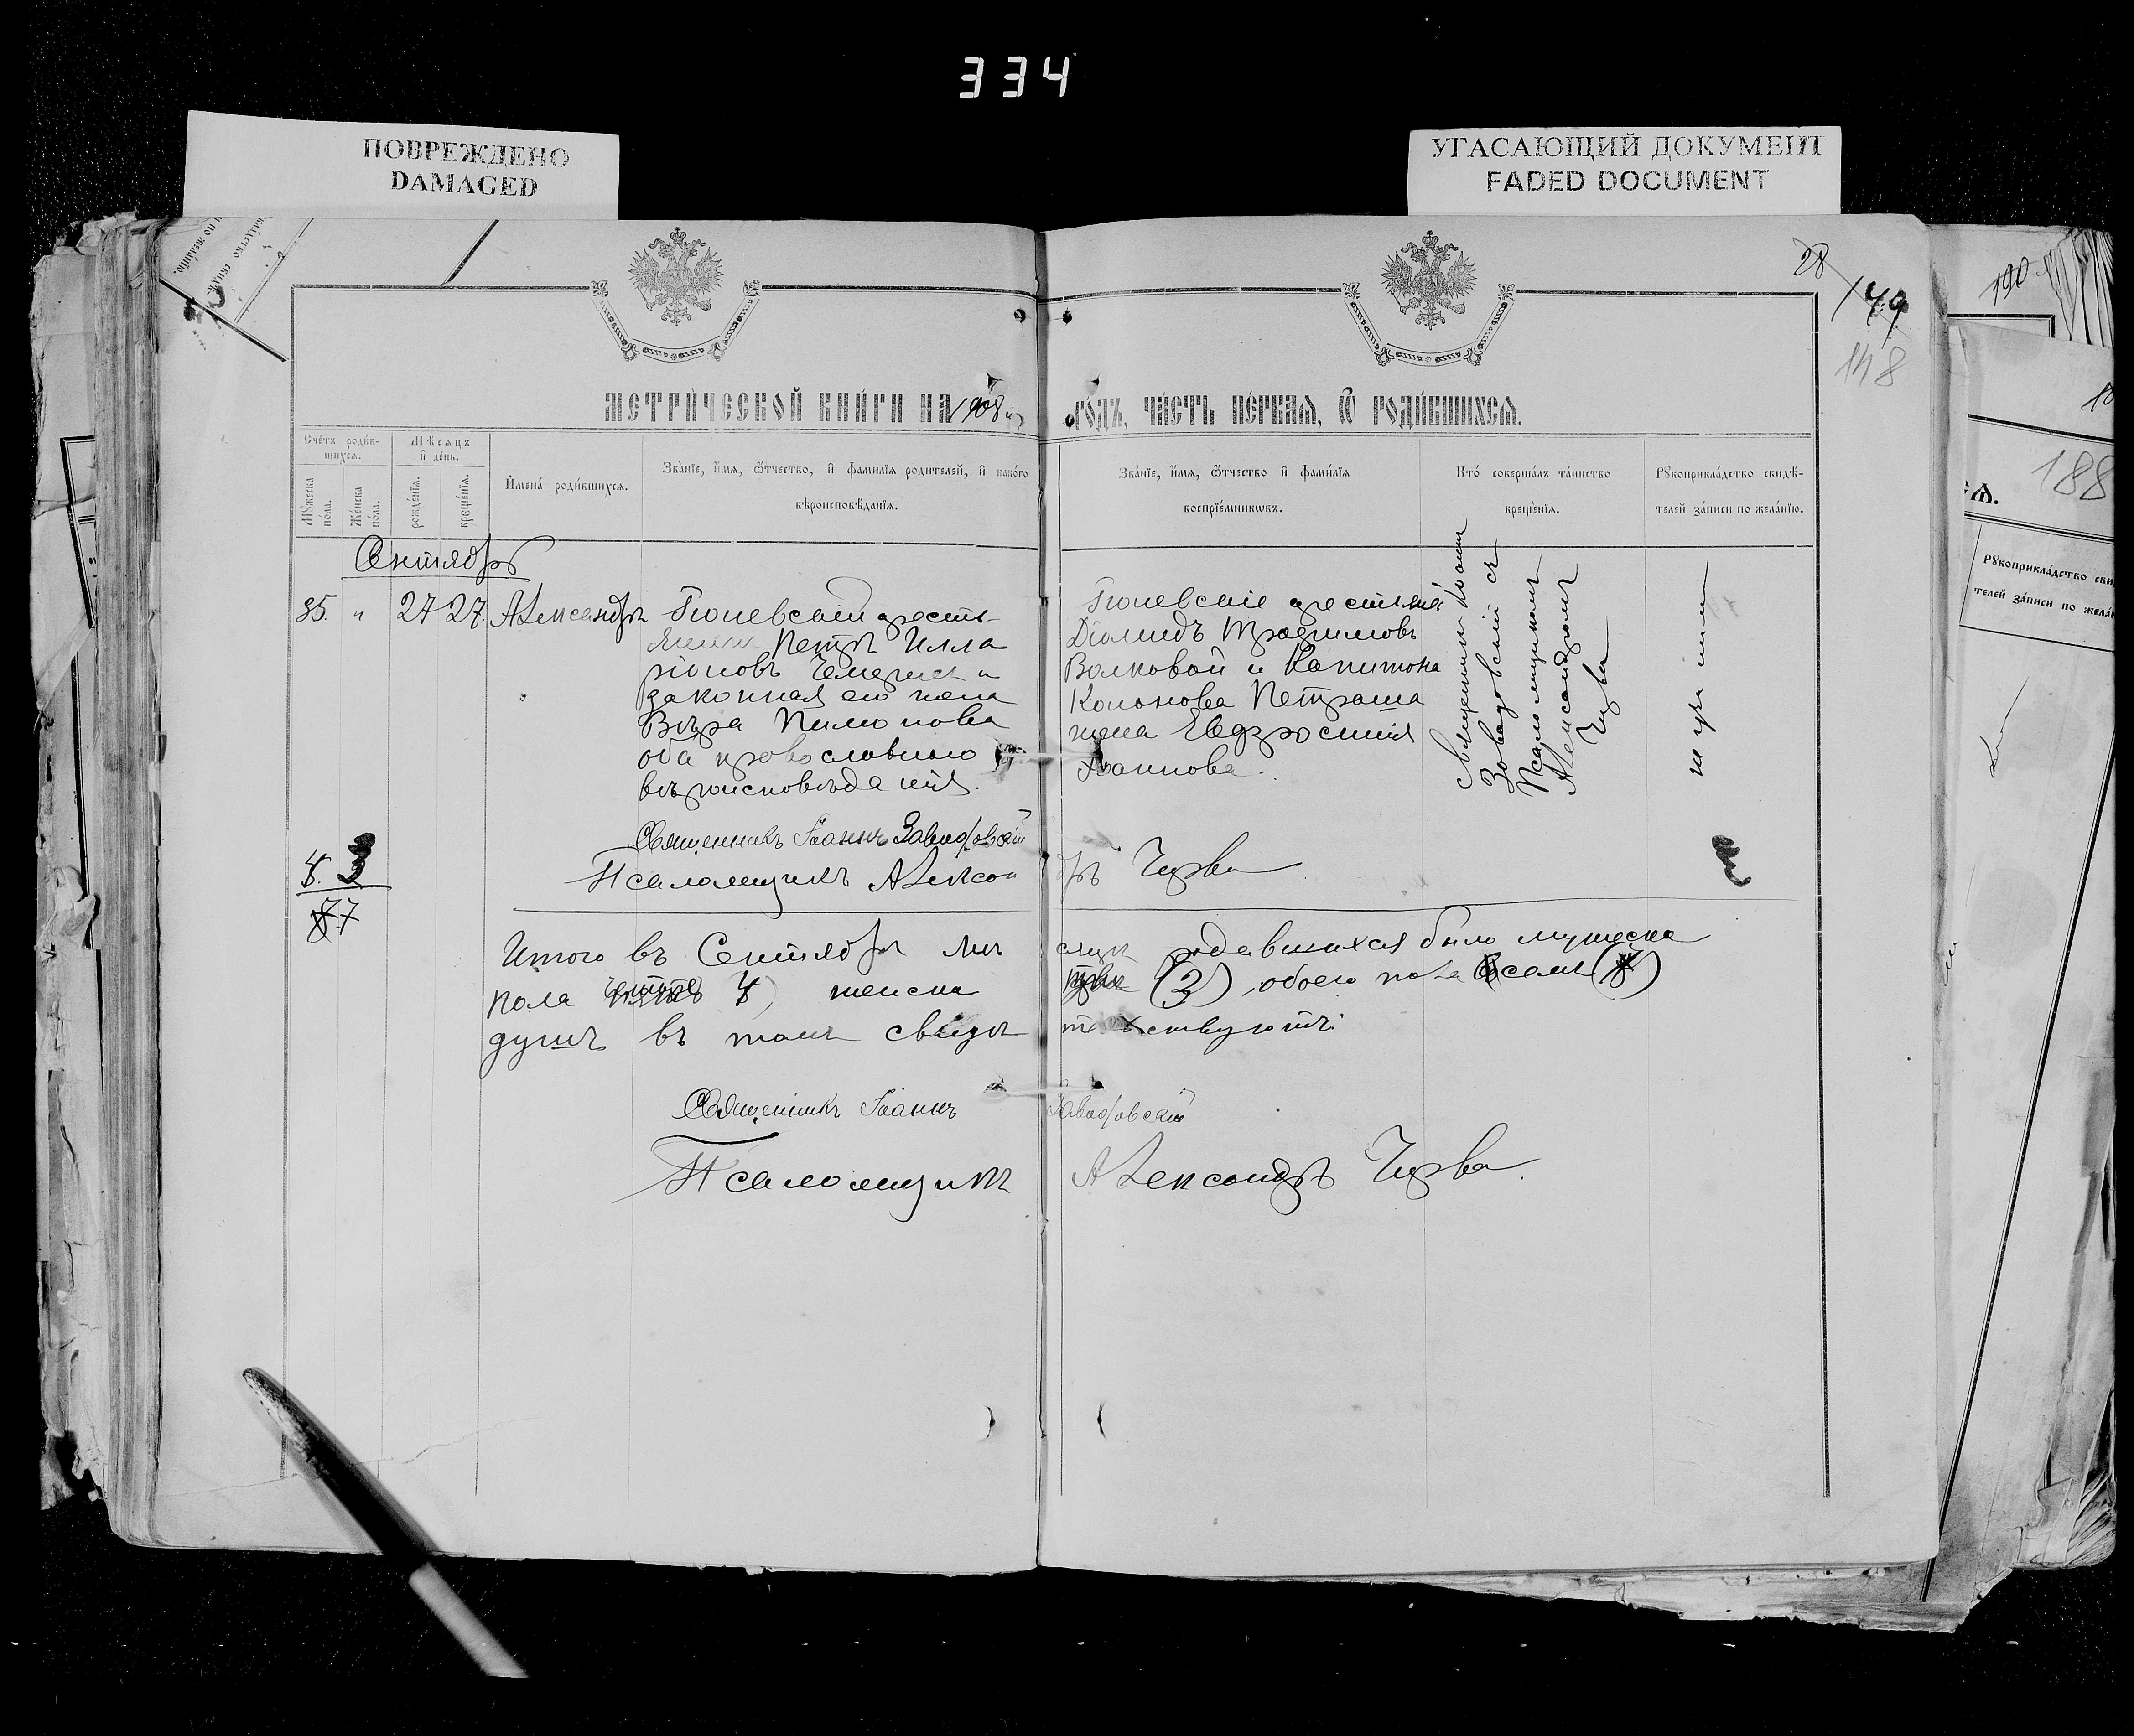 334
ПОВРЕЖДЕНО
DAMAGED
УГАСАЮЩИЙ ДОКУМЕНТ
FADED DOCUMENT
28
149
148
190
188
МЕТРИ́ЧЕСКОЙ КНИ́ГИ НА 1908
ГО́ДЪ, ЧА́СТЬ ПЕ́РВАЯ, Ѡ РОДИ́ВШИХСЯ.
Сче́тъ роди́в-
шихся.
Мѣ́сяцъ
и де́нь.
Му́жеска
по́ла.
Же́нска
по́ла.
рожде́нїя.
креще́нїя.
Имена́ роди́вшихся.
Зва́нїе, и́мя, ѻ́тчество, и фами́лїя роди́телей, и како́го
вѣроисповѣ́данїя.
Зва́нїе, и́мя, ѻ́тчество и фами́лїя
воспрїе́мниковъ.
Кто́ соверша́лъ та́инство
креще́нїя.
Рукоприкла́дство свидѣ́-
телей за́писи по жела́нїю.
Сентябрь
35. " 27 27. Александръ
крестъ-
янинъ Петръ Илла
ріоновъ и
законная его жена
Вѣра
оба православнаго
вѣроисповѣданія.
крестьяне
Діомидъ Трофимовъ
Волковой и Капитона
Кононова Петраша
жена Евфросинія
Іоаннова.
Священникъ Іоаннъ
Завадовскій съ
Псаломщикомъ
Александромъ
Чирва
Священникъ Іоаннъ Завадовскій
Псаломщикъ Александръ Чирва
4. 3
7
Итого въ Сентябрѣ мѣсяцѣ родившихся было мужеска
пола четыре 4) женска три (3), обоего пола семь (7)
душъ въ томъ свидѣтельствуютъ:
Священникъ Іоаннъ Завадовскій
Псаломщикъ Александръ Чирва.
Рукоприкла́дство сви
телей за́писи по жела́